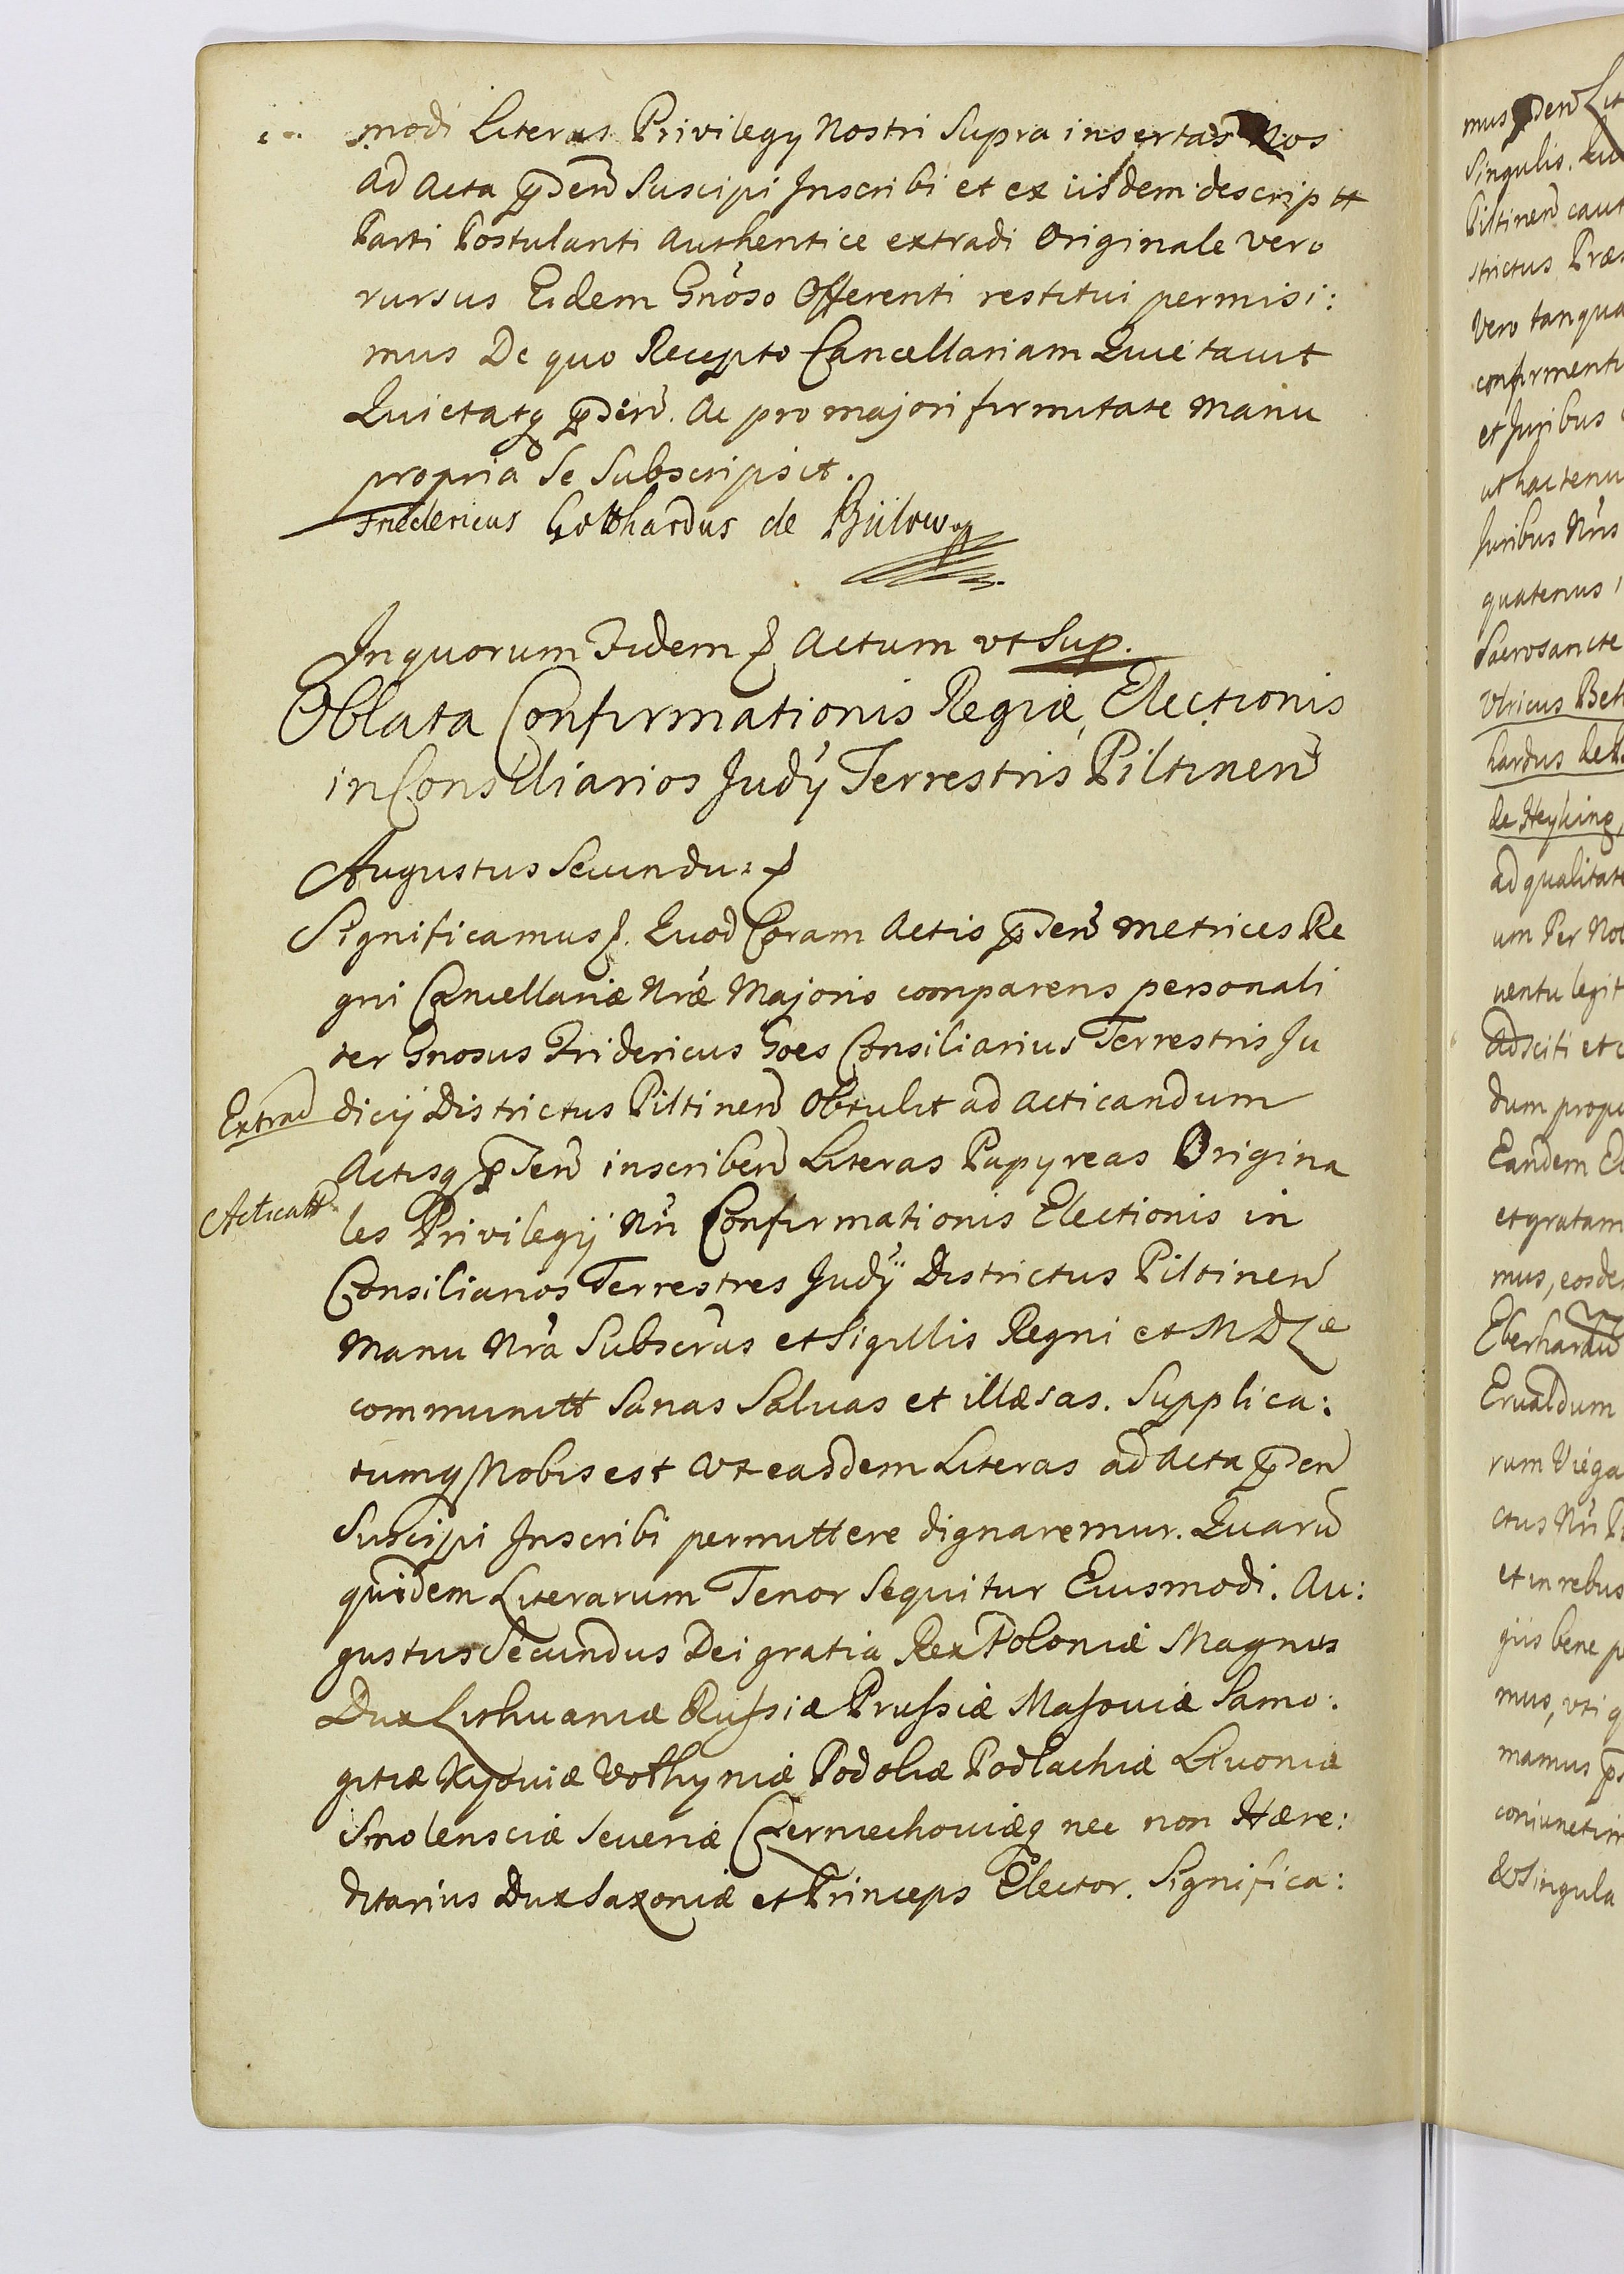 modi Literas Privilegy Nostri Supra insertas Nos
ad Acta p̃sen̄ Suscipi Inscribi et ex iisdem descriptt
Parti Postulanti Authentice extradi Originale vero
rursus Eidem Gn̄oso Offerenti restitui permisi:
mus De quo Recepto Cancellariam Quietauit
Quietatq p̃sen̄. Ac pro majori firmitate manu
propria Se Subscripsit.
Fridericus Gotthardus de Bülow
In quorum Fidem Actum vt Sup.
Oblata Confirmationis Regiæ, Electionis
in Consiliarios Judÿ Terrestris Piltinen̄
Augustus Secundus
Significamus. Quod Coram Actis p̃sen̄ Metrices Re
gni Cancellariæ Nr̄æ Majoris comparens personali
ter Gnosus Fridericus Goes Consiliarius Terrestris Ju
Extrad
dicij Districtus Piltinen̄ Obtulit ad acticandum
Actisq p̃sen̄ inscriben̄ Literas Papyreas Origina
Acticatt
les Privilegij Nr̄i Confirmationis Electionis in
Consiliarios Terrestres Judÿ Districtus Piltinen̄
Manu Nr̄a Subscr̄as et Sigillis Regni et M D Læ
communitt Sanas Saluas et illæsas. Supplica:
tumq Nobis est vt easdem Literas ad Acta p̃sen̄
Suscipi Inscribi permittere dignaremur. Quarū
quidem Literarum Tenor Sequitur Eiusmodi. Au:
gustus Secundus Dei gratia Rex Poloniæ Magnus
Dux Lithuaniæ Russiæ Prussiæ Masouiæ Samo:
gitiæ Kyouiæ Volhyniæ Podoliæ Podlachiæ Liuoniæ
Smolensciæ Seueriæ Czerniechouiæq nec non Hære:
ditarius Dux Saxoniæ et Princeps Elector. Significa:
mus p̃sen̄ Lit
Singulis.
Piltinen̄ caut
strictus Præs
Vero tanqua
confirmenti
et Juribus
ut hactenu
Juribus Nr̄is
quatenus
Sacrosancte
Vlricus Beh
hardus de
de Heyking,
ad qualitate
um Per Nob
uentu legit
adsciti et c
dum propu
Eandem
et gratam
mus, eosde
Eberhardū
Erualdum
rum Viega
ctus Nr̄i
et in rebus
giis bene p
mus, vti q
mamus
coniunctim
& Singula